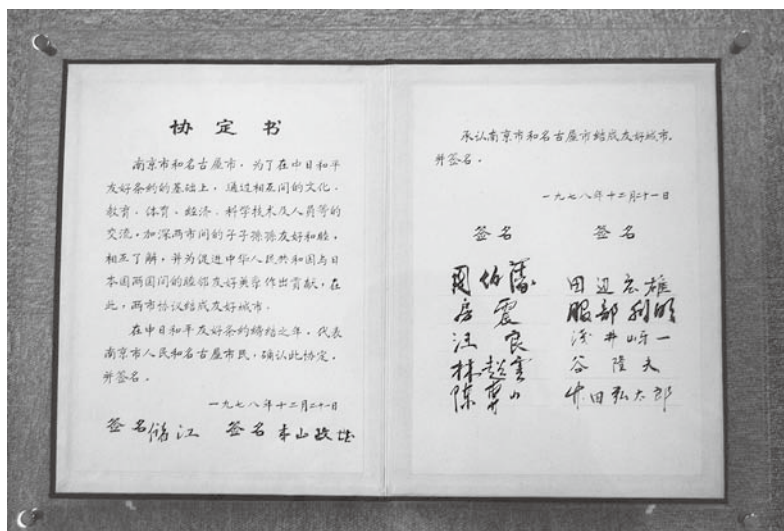 协定书
南京市和名古屋市，为了在中日和平
友好条约的基础上，通过相互间的文化、
教育、体育、经济、科学技术及人员等的
交流，加深两市间的子子孙孙友好和睦，
相互了解，并为促进中华人民共和国与日
本国两国间的睦邻友好关系作出贡献，在
此，两市协议结成友好城市。
在中日和平友好条约缔结之年，代表
南京市人民和名古屋市民，确认此协定，
并签名。
一九七八年十二月二十一日
签名 储江 签名 本山政雄
承认南京市和名古屋市结成友好城市，
并签名。
一九七八年十二月二十一日
签名 签名
周伯藩 田辺宏雄
房震 服部利明
汪良 浅井 一
林超 谷隆夫
陈 山 田弘太郎